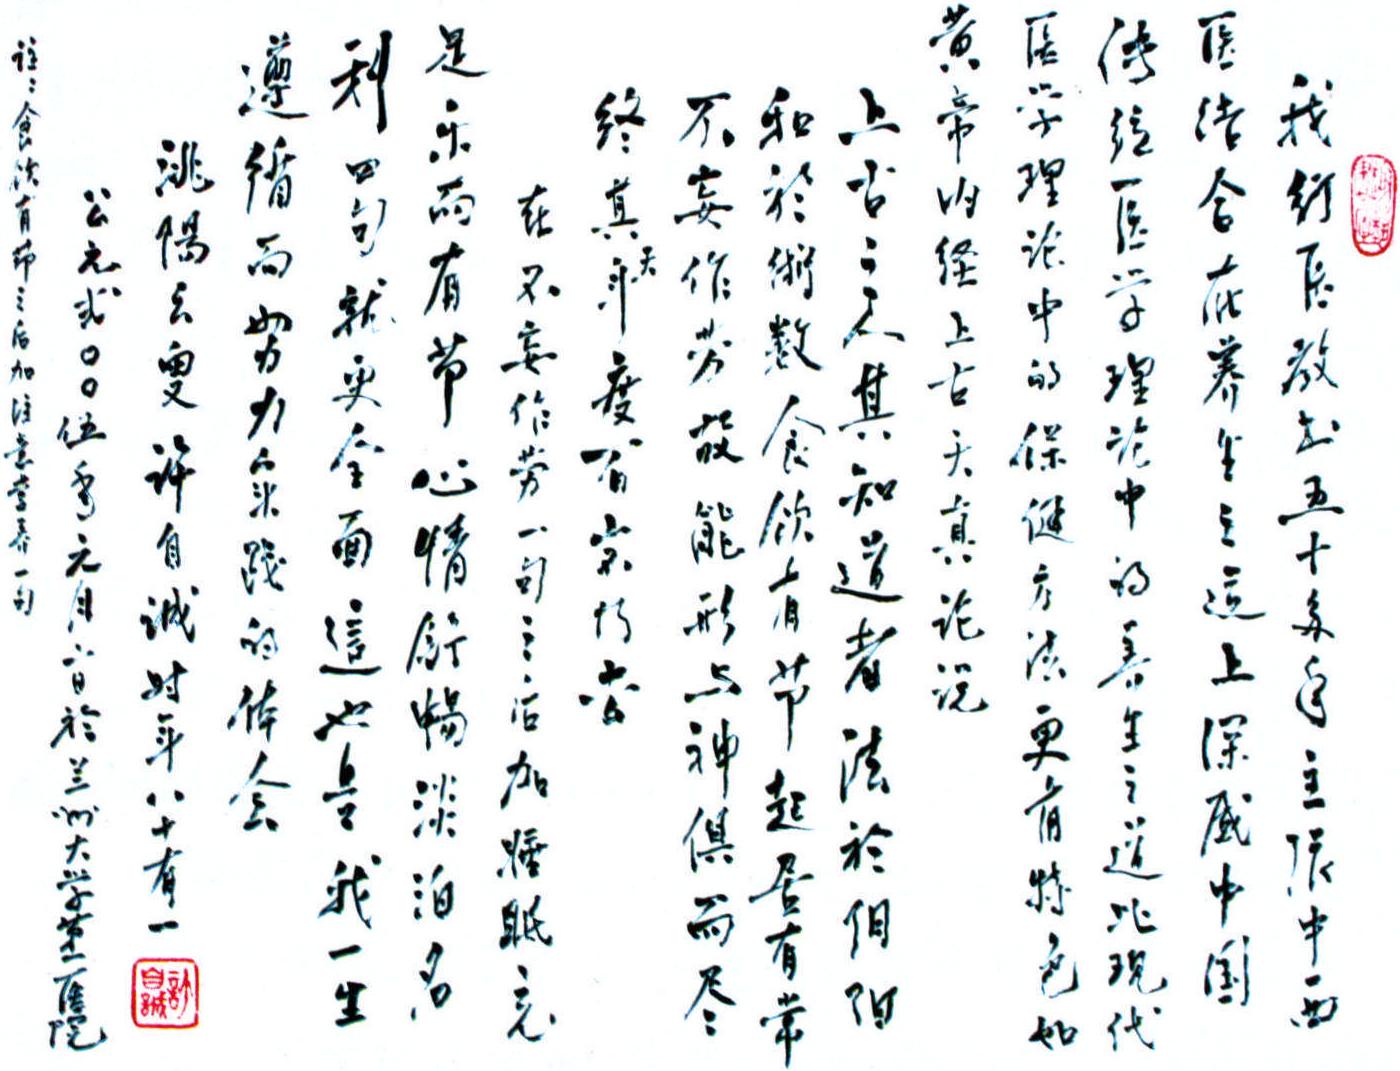 我行医教书五十多年主张中西
医结合在养生之道上深感中国
传统医学理论中的养生之道比现代
医学理论中的保健方法更有特色如
黄帝内经上古天真论说
上古之人其知道者法於阴阳
和於術数食饮有节起居有常
不妄作劳故能形与神俱而尽
终其天年度百岁乃去
在不妄作劳一句之后加睡眠充
足乐而有节心情舒畅淡泊名
利四句就更全面這也是我一生
遵循而努力实践的体会
洮陽之叟许自诚时年八十有一
许自誠
公元贰〇〇伍年元月六日於兰州大学第一医院
註：食饮有节之后加注意营养一句